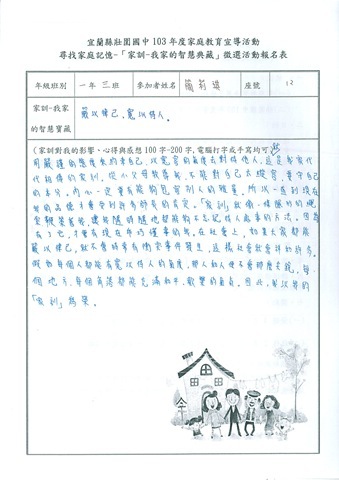 宜蘭縣壯圍國中 103 年度家庭教育宣導活動
尋找家庭記憶-「家訓-我家的智慧典藏」徵選活動報名表
年級班別 一年三班 參加者姓名 簡莉 座號 12
家訓-我家的智慧寶藏 嚴以律己,寬以待人。
(家訓對我的影響、心得與感想 100 字-200 字,電腦打字或手寫均可)
用嚴謹的態度來約束自己,以寬容的角度去對待他人,這是我家代
代相傳的家訓,從小父母教導我,不能對自己太縱容,要守自己
的本分,內心一定要有能夠包容別人的雅量,所以一直到現在
我的品德才會受到許多師長的肯定。「家訓」就像一條隱形的繩
緊緊著我,讓我隨時隨地都能夠不忘記待人處事的方法。因為
有了它,才會有現在乖巧懂事的我。在社會上,如果大家都能
嚴以律己,就不會時常有衝突事件發生,這樣社會就會祥和許多。
假如每個人都能有寬以待人的氣度,那人和人便不會那麼去計較,每一
個地方、每個角落都能充滿和平、歡樂的氣氛。因此,我以我的
「家訓」為榮。